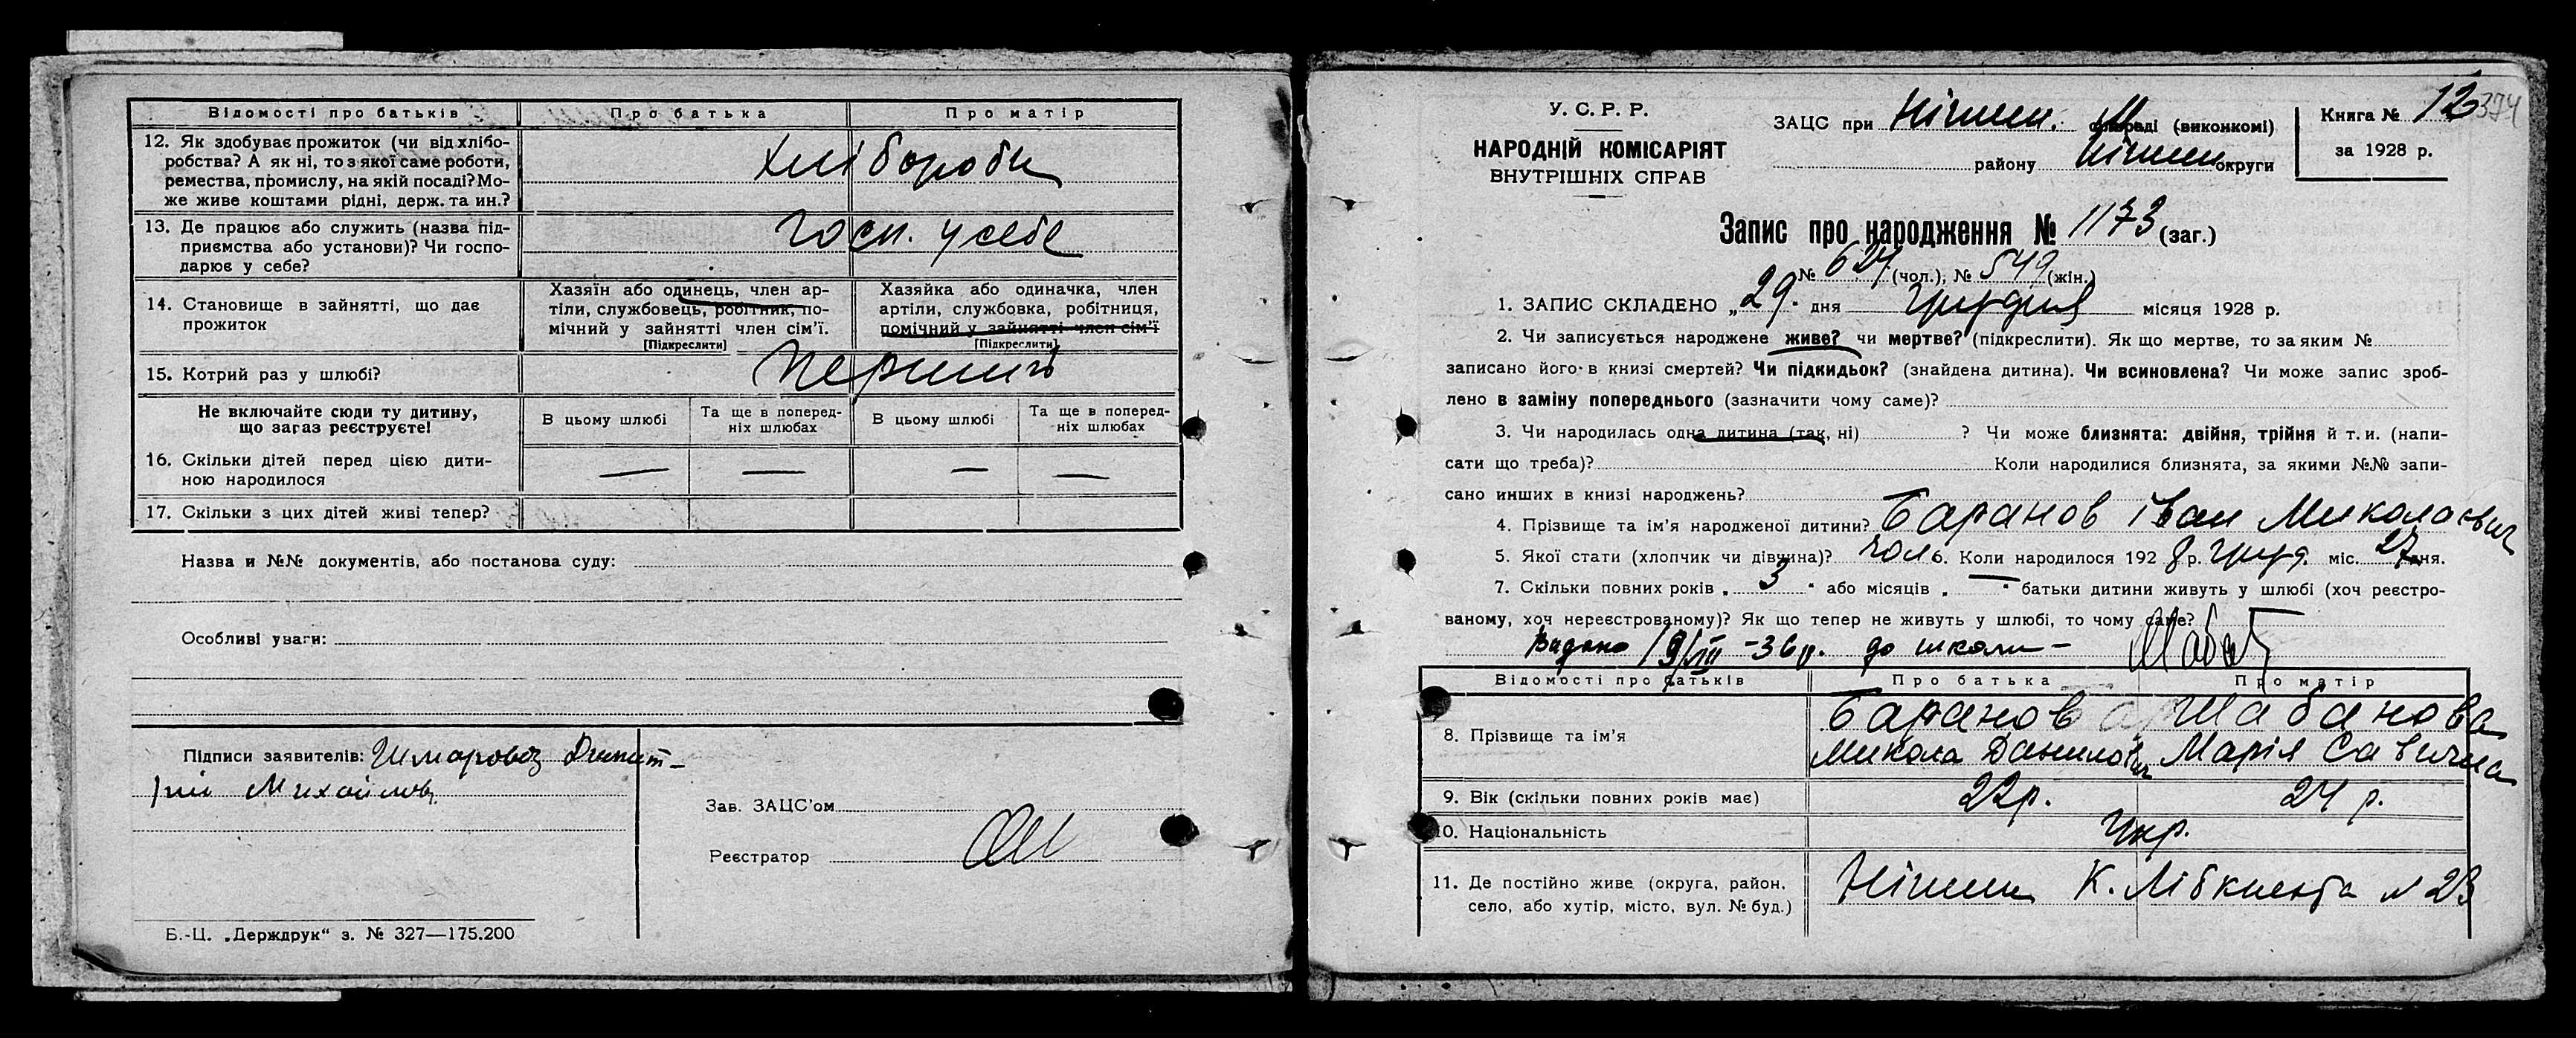 Відомості про батьків Про батька Про матір
12. Як здобуває прожиток (чи від хлібо-
робства? А як ні, то з якої саме роботи,
ремества, промислу, на якій посаді? Мо-
же живе коштами рідні, держ. та ин.?
хлібороби
13. Де працює або служить (назва під-
приємства або установи)? Чи госпо-
дарює у себе?
госп. у себе
14. Становище в зайнятті, що дає
прожиток
Хазяїн або одинець, член ар-
тіли, службовець, робітник, по-
мічний у зайнятті член сім'ї.
[Підкреслити]
Хазяйка або одиначка, член
артіли, службовка, робітниця,
помічний у зайнятті член сім'ї
[Підкреслити]
15. Котрий раз у шлюбі?
перший
Не включайте сюди ту дитину,
що загаз реєструєте!
В цьому шлюбі
Та ще в поперед-
ніх шлюбах
В цьому шлюбі
Та ще в поперед-
ніх шлюбах
16. Скільки дітей перед цією дити-
ною народилося
— — — —
17. Скільки з цих дітей живі тепер?
Назва и №№ документів, або постанова суду:
Особливі уваги:
Підписи заявителів:
Зав. ЗАЦС'ом
Реєстратор
Б.-Ц. „Держдрук“ з. № 327—175.200
У. С. Р. Р.
НАРОДНІЙ КОМІСАРІЯТ
ВНУТРІШНІХ СПРАВ
ЗАЦС при Ніжин. (виконкомі)
району Ніжин округи
Книга № 12 374
за 1928 р.
Запис про народження № 1173 (заг.)
№ 624 (чол.), № 549 (жін.)
1. ЗАПИС СКЛАДЕНО „29. дня грудня місяця 1928 р.
2. Чи записується народжене живе? чи мертве? (підкреслити). Як що мертве, то за яким №
записано його в книзі смертей? Чи підкидьок? (знайдена дитина). Чи всиновлена? Чи може запис зроб-
лено в заміну попереднього (зазначити чому саме)?
3. Чи народилась одна дитина (так, ні) ? Чи може близнята: двійня, трійня й т. и. (напи-
сати що треба)? Коли народилися близнята, за якими №№ запи-
сано инших в книзі народжень?
4. Прізвище та ім'я народженої дитини? Баранов Іван Миколаєвич
5. Якої стати (хлопчик чи дівчина)? чол 6. Коли народилося 1928 р. груд. міс. 27 дня.
7. Скільки повних років „ 3 “ або місяців „ — “ батьки дитини живуть у шлюбі (хоч реєстро-
ваному, хоч нереєстрованому)? Як що тепер не живуть у шлюбі, то чому саме?
Видано 19/VIII-36 р. до школи —
Відомості про батьків Про батька Про матір
8. Прізвище та ім'я
Баранов
Микола Данилович
Шабанова
Марія Савична
9. Вік (скільки повних років має) 22 р. 24 р.
10. Національність Укр.
11. Де постійно живе (округа, район,
село, або хутір, місто, вул. № буд.)
Ніжин К. Лібкнехта № 23